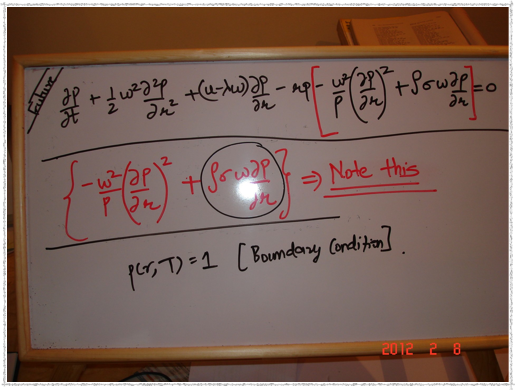 Future
∂p/∂t + 1/2 w² ∂²p/∂r² + (u-λw) ∂p/∂r - rp [ - w²/p (∂p/∂r)² + ρσw ∂p/∂r ] = 0
{ - w²/p (∂p/∂r)² + ρσw ∂p/∂r } ⇒ Note this
p(r,T) = 1 [Boundary Condition].
2012 2 8